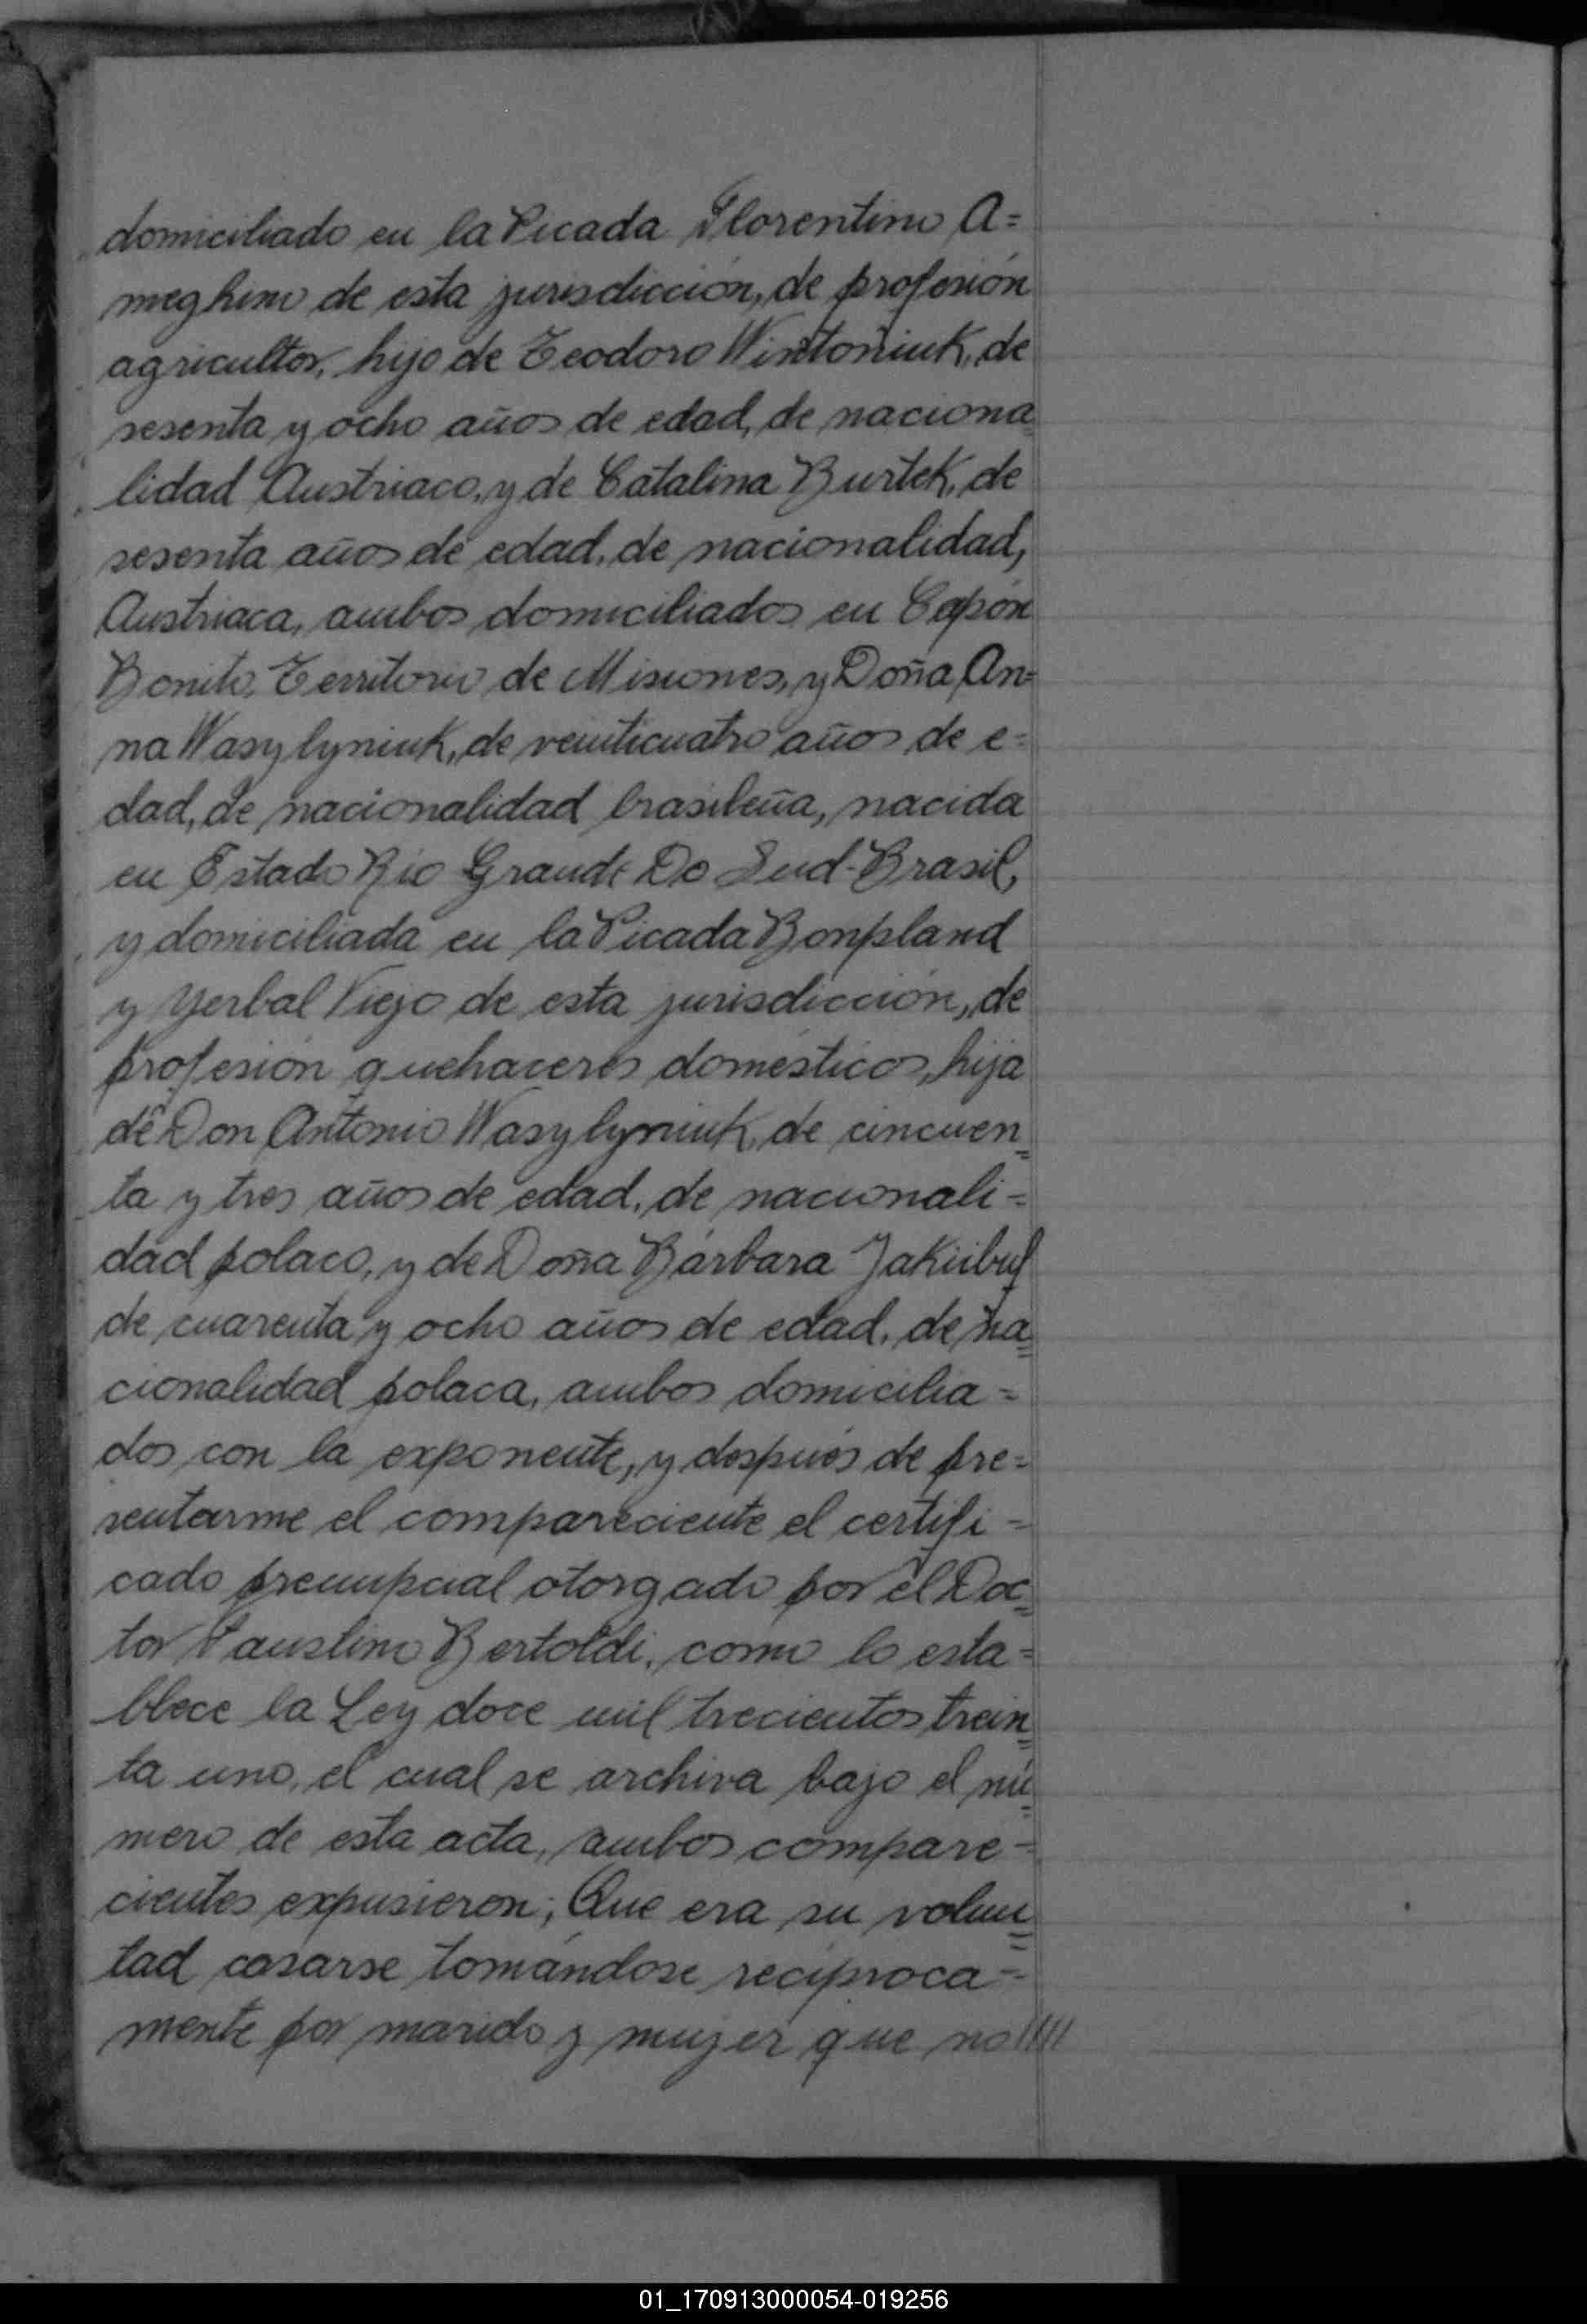 domiciliado en la Picada Florentino A=
meghino de esta jurisdicción, de profesión
agricultor, hijo de Teodoro Wintoniuk, de
sesenta y ocho años de edad, de naciona
lidad Austriaco, y de Catalina Burtek, de
sesenta años de edad, de nacionalidad,
Austriaca, ambos domiciliados en Capón
Bonito, Territorio de Misiones, y Doña An=
na Wasylyniuk, de veinticuatro años de e=
dad, de nacionalidad brasileña, nacida
en Estado Rio Grande Do Sud-Brasil,
y domiciliada en la Picada Bonpland
y Yerbal Viejo de esta jurisdicción, de
profesión quehaceres domésticos, hija
de Don Antonio Wasylyniuk, de cincuen=
ta y tres años de edad, de nacionali=
dad polaco, y de Doña Bárbara
de cuarenta y ocho años de edad, de na=
cionalidad polaca, ambos domicilia=
dos con la exponente, y después de pre=
sentarme el compareciente el certifi=
cado prenupcial otorgado por el Doc=
tor Faustino Bertoldi, como lo esta=
blece la Ley doce mil trecientos trein=
ta uno, el cual se archiva bajo el nú=
mero de esta acta, ambos compare=
cientes expusieron; Que era su volun=
tad casarse tomándose recíproca=
mente por marido y mujer que no////
01_170913000054-019256